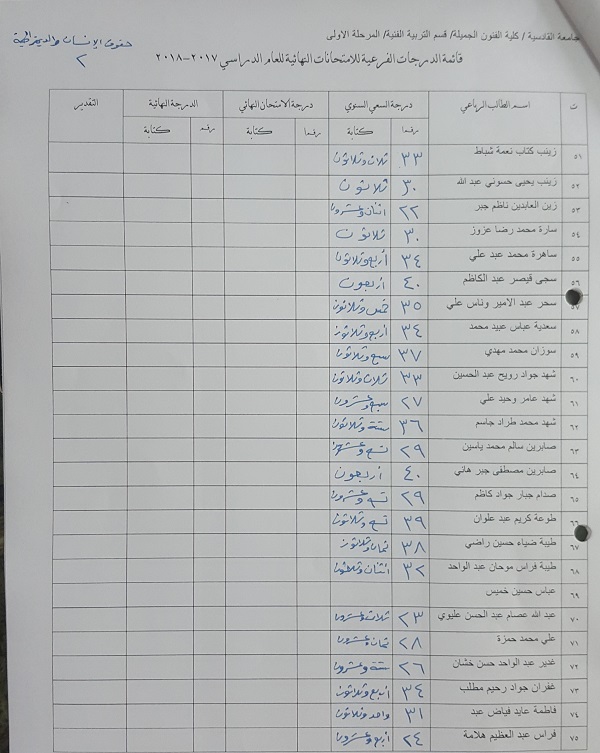 جامعة القادسية / كلية الفنون الجميلة / قسم التربية الفنية / المرحلة الاولى
حقوق الإنسان والديمقراطية
٢
قائمة الدرجات الفرعية للامتحانات النهائية للعام الدراسي ٢٠١٧-٢٠١٨
ت اسم الطالب الرباعي درجة السعي السنوي درجة الامتحان النهائي الدرجة النهائية التقدير
رقما كتابة رقما كتابة رقما كتابة
٥١ زينب كتاب نعمة شياط ٣٣ ثلاث وثلاثون
٥٢ زينب يحيى حسوني عبد الله ٣٠ ثلاثون
٥٣ زين العابدين ناظم جبر ٢٢ اثنان وعشرون
٥٤ سارة محمد رضا عزوز ٣٠ ثلاثون
٥٥ ساهرة محمد عبد علي ٣٤ أربع وثلاثون
٥٦ سجى قيصر عبد الكاظم ٤٠ اربعون
٥٧ سحر عبد الامير وناس علي ٣٥ خمس وثلاثون
٥٨ سعدية عباس عبيد محمد ٣٤ اربع وثلاثون
٥٩ سوزان محمد مهدي ٣٧ سبع وثلاثون
٦٠ شهد جواد رويح عبد الحسين ٣٣ ثلاث وثلاثون
٦١ شهد عامر وحيد علي ٢٧ سبع وعشرون
٦٢ شهد محمد طراد جاسم ٣٦ ستة وثلاثون
٦٣ صابرين سالم محمد ياسين ٢٩ تسع وعشرون
٦٤ صابرين مصطفى جبر هاني ٤٠ أربعون
٦٥ صدام جبار جواد كاظم ٢٩ تسع وعشرون
٦٦ طوعة كريم عبد علوان ٣٩ تسع وثلاثون
٦٧ طيبة ضياء حسين راضي ٣٨ ثمان وثلاثون
٦٨ طيبة فراس موحان عبد الواحد ٣٢ اثنان وثلاثون
٦٩ عباس حسين خميس
٧٠ عبد الله عصام عبد الحسن عليوي ٢٣ ثلاث وعشرون
٧١ علي محمد حمزة ٢٨ ثمان وعشرون
٧٢ غدير عبد الواحد حسن خشان ٢٦ ستة وعشرون
٧٣ غفران جواد رحيم مطلب ٣٤ اربع وثلاثون
٧٤ فاطمة عايد فياض عبد ٣١ واحد وثلاثون
٧٥ فراس عبد العظيم هلامة ٢٤ اربع وعشرون